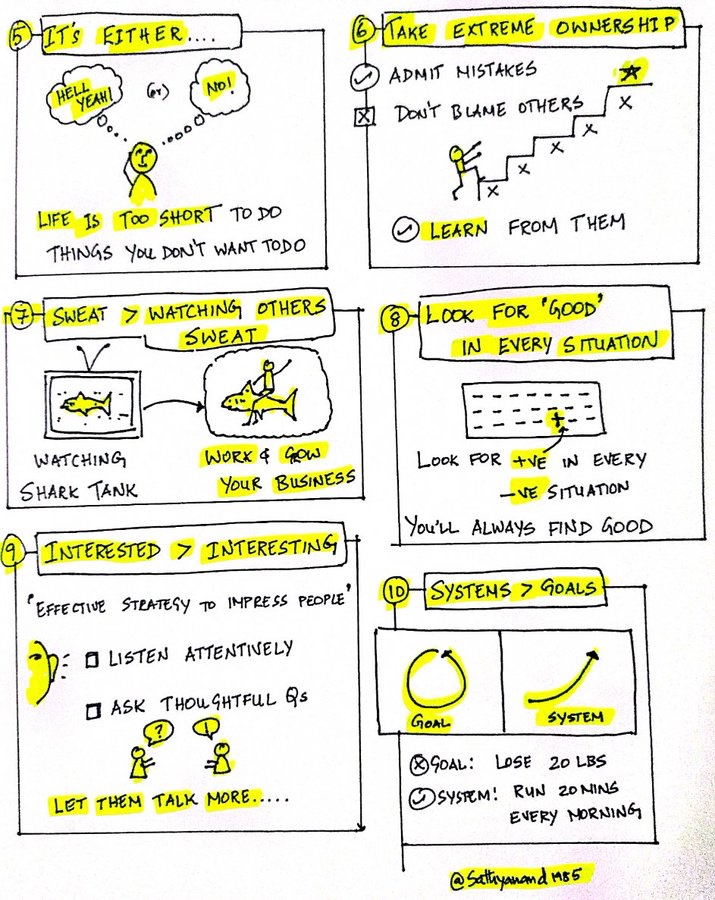 5 IT'S EITHER....
HELL YEAH!
(or)
NO!
LIFE IS TOO SHORT TO DO
THINGS YOU DON'T WANT TO DO
6 TAKE EXTREME OWNERSHIP
ADMIT MISTAKES
DON'T BLAME OTHERS
LEARN FROM THEM
7 SWEAT > WATCHING OTHERS
SWEAT
WATCHING
SHARK TANK
WORK & GROW
YOUR BUSINESS
8 LOOK FOR 'GOOD'
IN EVERY SITUATION
LOOK FOR +VE IN EVERY
-VE SITUATION
YOU'LL ALWAYS FIND GOOD
9 INTERESTED > INTERESTING
'EFFECTIVE STRATEGY TO IMPRESS PEOPLE'
LISTEN ATTENTIVELY
ASK THOUGHTFUL QS
?
!
LET THEM TALK MORE.....
10 SYSTEMS > GOALS
GOAL
SYSTEM
GOAL: LOSE 20 LBS
SYSTEM: RUN 20 MINS
EVERY MORNING
@Sathyanand1985